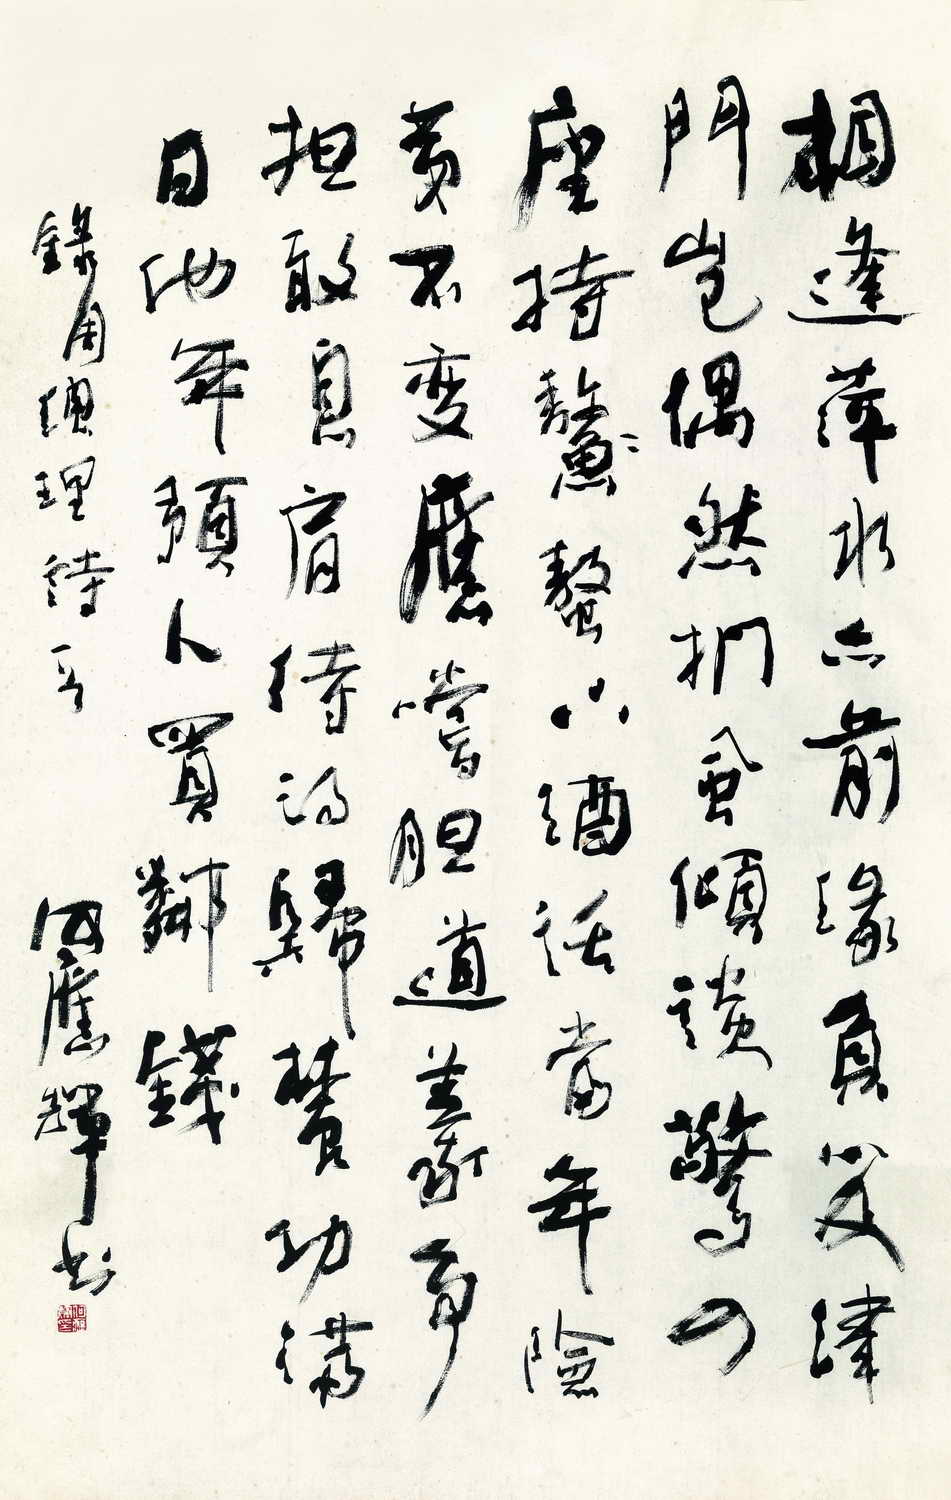 相逢萍水亦前缘負笈津
門岂偶然扪虱傾談驚四
座持鰲螯下酒話當年險
夷不變應嚐胆道義争
担敢息肩待得歸農功满
日他年預卜買鄰錢
錄周總理詩一首 何應輝书